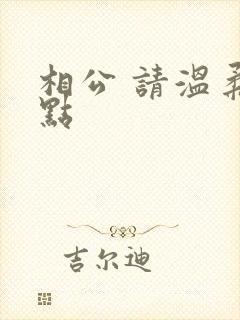 相公 請溫柔
點
吉尔迪